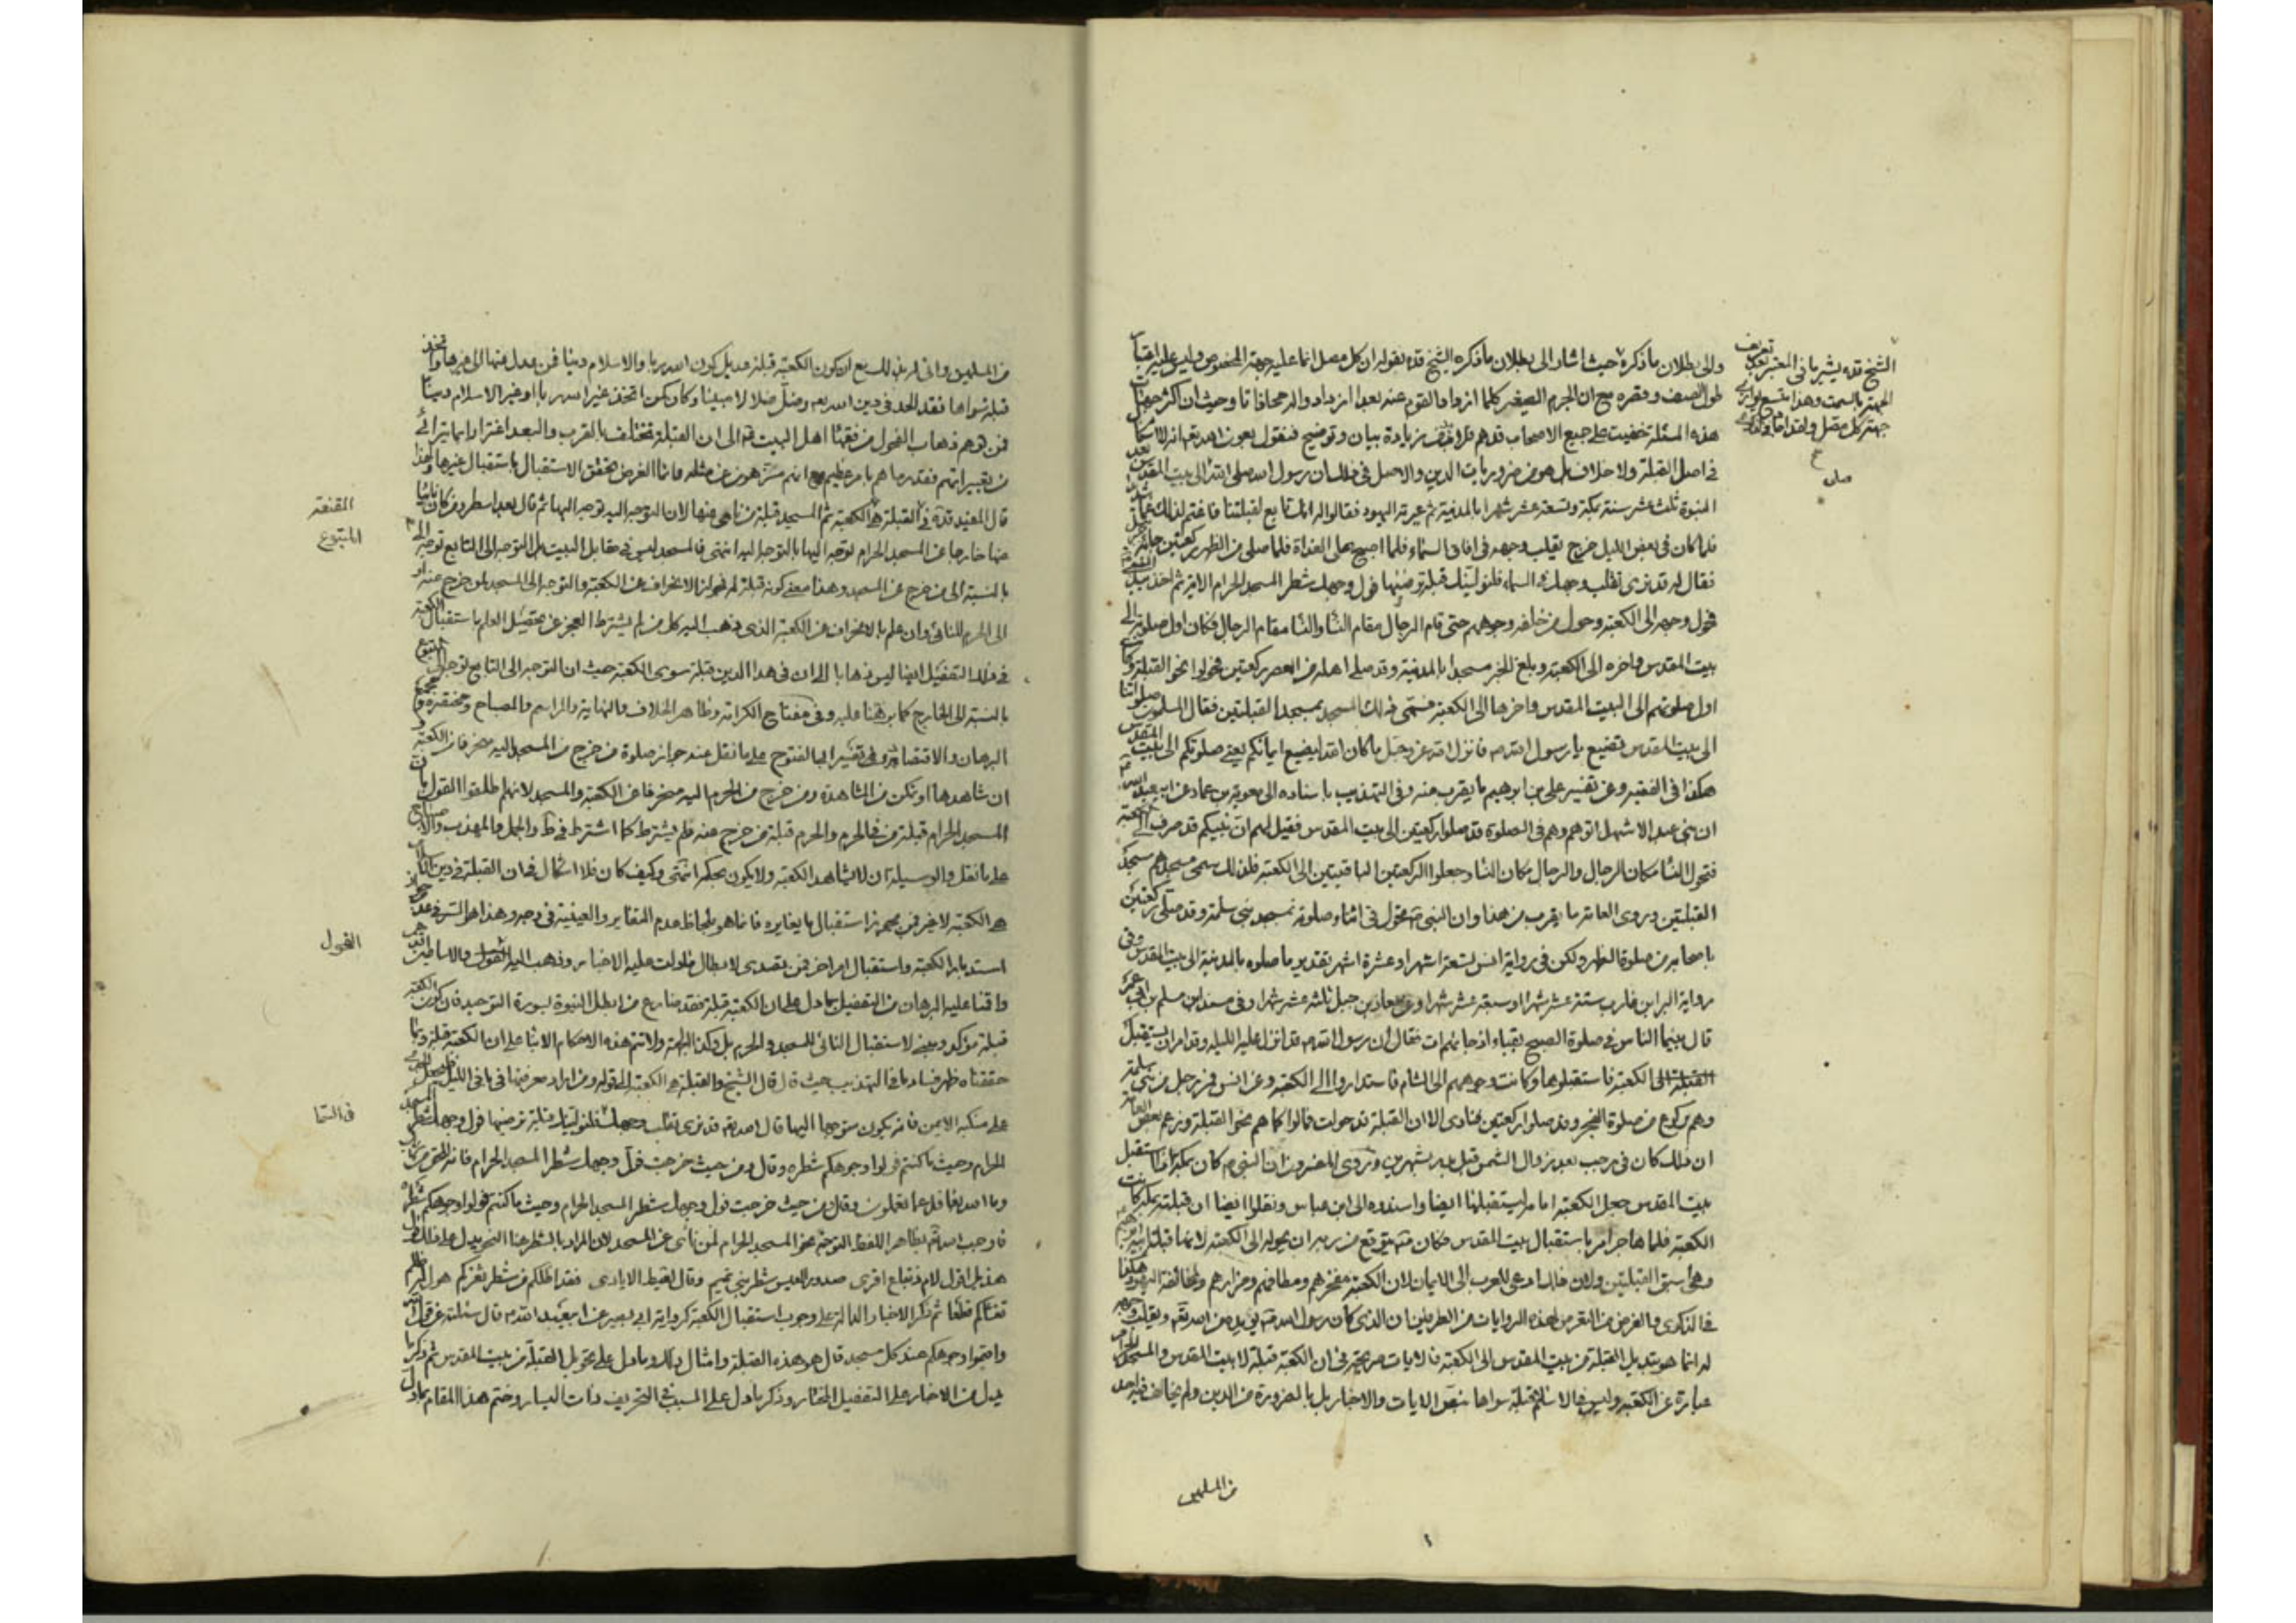 والى بطلان ما ذكره حيث اشار الى بطلان ما ذكره الشيخ قده بقوله ان كل مصل انما عليه جهته المخصوص وليس عليه اتباع
طول الصف وقصره مع ان الجرم الصغير كلما ازداد القوم عنه بعدا ازداد واله محاذاتا وحيث ان
هذه المسئلة خفيت على جميع الاصحاب قدهم فلا بزيادة بيان وتوضيح فنقول بعون الله تع انه لا
في اصل القبلة ولا خلاف بل هو من ضروريات الدين والاصل في ذلك ان رسول الله صلى الى بيت المقدس بعد
النبوة ثلث عشر سنة بمكة وتسعة عشر شهرا بالمدينة ثم عيرته اليهود فقالوا له انك تابع لقبلتنا فاغتم لذلك غما
فلما كان في بعض الليل خرج يقلب وجهه في افاق السماء فلما اصبح صلى الغداة فلما صلى من الظهر ركعتين جائه جبرئيل
فقال له قد نرى تقلب وجهك في السماء فلنولينك قبلة ترضيها فول وجهك شطر المسجد الحرام الاية ثم اخذ بيد النبي
فحول وجهه الى الكعبة وحول من خلفه وجوههم حتى قام الرجال مقام النساء والنساء مقام الرجال فكان اول صلوته الى
بيت المقدس واخره الى الكعبة وبلغ الخبر مسجدا بالمدينة وقد صلى اهله من العصر ركعتين فحولوا نحو القبلة وكانت
اول صلوتهم الى البيت المقدس واخرها الى الكعبة فسمى ذلك المسجد بمسجد القبلتين فقال المسلمون صلواتنا
الى بيت المقدس تضيع يا رسول الله فانزل الله عز وجل ما كان الله ليضيع ايمانكم يعني صلوتكم الى بيت المقدس
هكذا في الفقيه وعن تفسير على بن ابرهيم ما يقرب منه وفي التهذيب باسناده الى معوية بن عمار عن ابي عبد الله
ان بني عبد الاشهل اتوهم وهم في الصلوة قد صلوا ركعتين الى بيت المقدس فقيل لهم ان نبيكم قد صرف الى الكعبة
فتحول النساء مكان الرجال والرجال مكان النساء وجعلوا الركعتين الباقيتين الى الكعبة فلذلك سمى مسجدهم مسجد
القبلتين وروى العامة ما يقرب من هذا وان النبي تحول في اثناء صلوته بمسجد بني سلمة وقد صلى ركعتين
باصحابه من صلوة الظهر ولكن في رواية انس لتسعة اشهر او عشرة اشهر تقدير ما صلوه بالمدينة الى بيت المقدس وفي
رواية البراء بن عازب ستة عشر شهرا او سبعة عشر شهرا وعن معاذ بن جبل ثلثة عشر شهرا وفي مسند ابن مسلم عن ابن عمر
قال بينما الناس في صلوة الصبح بقباء اذ جائهم ات فقال ان رسول الله قد انزل عليه الليلة وقد امر ان يستقبل
القبلة الى الكعبة فاستقبلوها وكانت وجوههم الى الشام فاستداروا الى الكعبة وعن انس فمر رجل من بني سلمة
وهم ركوع من صلوة الفجر وقد صلوا ركعتين فنادى الا ان القبلة قد حولت فمالوا كما هم نحو القبلة وزعم بعض العامة
ان ذلك كان في رجب بعد زوال الشمس قبل بدر بشهرين وروى المفسرون ان النبي كان بمكة اذا استقبل
بيت المقدس جعل الكعبة امامه ليستقبلها ايضا واسندوه الى ابن عباس ونقلوا ايضا ان قبلته بمكة كانت
الكعبة فلما هاجر امر باستقبال بيت المقدس فكان يتوقع من ربه ان يحوله الى الكعبة لانها قبلة ابيه ابرهيم
وهي اسبق القبلتين ولان ذلك ادعى للعرب الى الايمان لان الكعبة مفخرهم ومطافهم ومزارهم ولمخالفة اليهود هكذا
في الذكرى والغرض من التعرض لهذه الروايات من الطرفين ان الذي كان رسول الله يريد من الله تع ويقلب وجهه
له انما هو تبديل القبلة من بيت المقدس الى الكعبة فالايات صريحة في ان الكعبة قبلة لا بيت المقدس والمسجد الحرام
عبارة عن الكعبة وليس في الاسلام قبلة سواها بنص الايات والاخبار بل بالضرورة من الدين ولم يخالف فيه احد
من المسلمين
الشيخ قده يشير بما في المعتبر
الجهة بالسمت وهذا
جهة كل مصل
من المسلمين واني لم يكن للسبع ان يكون الكعبة قبلة وبديل كون الله ربا والاسلام دينا فمن عدل عنها الى غيرها واتخذ
قبلة سواها فقد الحد في دين الله تع وضل ضلالا مبينا وكان كمن اتخذ غير الله ربا او غير الاسلام دينا
فمن توهم ذهاب الفحول من فقهاء اهل البيت الى ان القبلة تختلف بالقرب والبعد اغترارا بما يترائى
من تعبيراتهم فقد رماهم بامر عظيم مع انهم منزهون عن مثله وانما الغرض تحقق الاستقبال باستقبال غيرها ولهذا
قال المفيد قده في القبلة هي الكعبة ثم المسجد قبلة من نأى عنها لان التوجه اليه توجه اليها ثم قال بعد اسطر ومن كان نائيا
عنها خارجا عن المسجد الحرام توجه اليها بالتوجه اليه انتهى فالمسجد ليس في مقابل البيت بل التوجه الى التابع توجه الى
بالنسبة الى من خرج عن المسجد وهذا معنى كونه قبلة له فيجوز الانحراف عن الكعبة والتوجه الى المسجد لمن خرج عنه او
الى الحرم للنائي وان علم بالانحراف عن الكعبة الذي ذهب اليه كل من لم يشترط العجز عن تحصيل العلم باستقبال الكعبة
في ذلك التفصيل ايضا ليس ذهابا الى ان في هذا الدين قبلة سوى الكعبة حيث ان التوجه الى التابع توجه الى المتبوع
بالنسبة الى الخارج كما برهنا عليه وفي مفتاح الكرامة وظاهر الخلاف والنهاية والمراسم والمصباح ومختصره ومجمع
البرهان والاقتصار وفي تفسير ابي الفتوح على ما نقل عنه جواز صلوة من خرج من المسجد اليه منحرفا عن الكعبة
ان شاهدها او تمكن من المشاهدة ومن خرج من الحرم اليه منحرفا عن الكعبة والمسجد لانهم اطلقوا القول بان
المسجد الحرام قبلة من في الحرم والحرم قبلة من خرج عنه فلم يشترط كما اشترط في ط والجمل والمهذب والاصباح
على ما نقل والوسيلة ان لا يشاهد الكعبة ولا يكون بحكمه انتهى وكيف كان فلا اشكال في ان القبلة في دين الاسلام
هي الكعبة لا غير فمن جوز استقبال ما يغايره فانما هو بلحاظ عدم التغاير والعينية في وجه وهذا هو السر في عد
استدبار الكعبة واستقبال فمن تصدى لابطال ما دلت عليه الاخبار وذهب اليه الفحول والاساطين
واقمنا عليه البرهان من التفصيل بما دل على ان الكعبة قبلة فقد ضارع من ابطل النبوة بسورة التوحيد فان كون الكعبة
قبلة مؤكد ومبني لاستقبال النائي للمسجد والحرم بل وكذا الجهة ولا تتم هذه الاحكام الا بناء على ان الكعبة قبلة وبما
حققناه ظهر فساد ما في التهذيب حيث قال الشيخ والقبلة هي الكعبة الى قوله ومن اراد معرفتها في باقي الليل فليجعل الجدي
على منكبه الايمن فانه يكون متوجها اليها قال الله تع قد نرى تقلب وجهك فلنولينك قبلة ترضيها فول وجهك شطر المسجد
الحرام وحيث ما كنتم فولوا وجوهكم شطره وقال ومن حيث خرجت فول وجهك شطر المسجد الحرام فانه للحق من ربك
وما الله بغافل عما تعملون وقال ومن حيث خرجت فول وجهك شطر المسجد الحرام وحيث ما كنتم فولوا وجوهكم شطره
فاوجب الله تع بظاهر اللفظ التوجه نحو المسجد الحرام لمن نأى عن المسجد لان المراد بالشطر هنا النحو يدل على ذلك قول
هذيل اقول لام زنباع اقيمى صدور العيس شطر بني تميم وقال لقيط الايادي فقد اظلكم من شطر ثغركم هول له ظلم
تغشاكم قطعا ثم ذكر الاخبار الدالة على وجوب استقبال الكعبة كرواية ابي بصير عن ابي عبد الله قال سئلته عن قول الله
واقيموا وجوهكم عند كل مسجد قال هو هذه القبلة وامثال ذلك وما دل على تحويل القبلة من بيت المقدس ثم ذكر ما
يدل من الاخبار على التفصيل المختار وذكر ما دل على السبب في التحريف ذات اليسار وختم هذا المقام بما دل
المقنعة
المتبوع
الفحول
في السماء